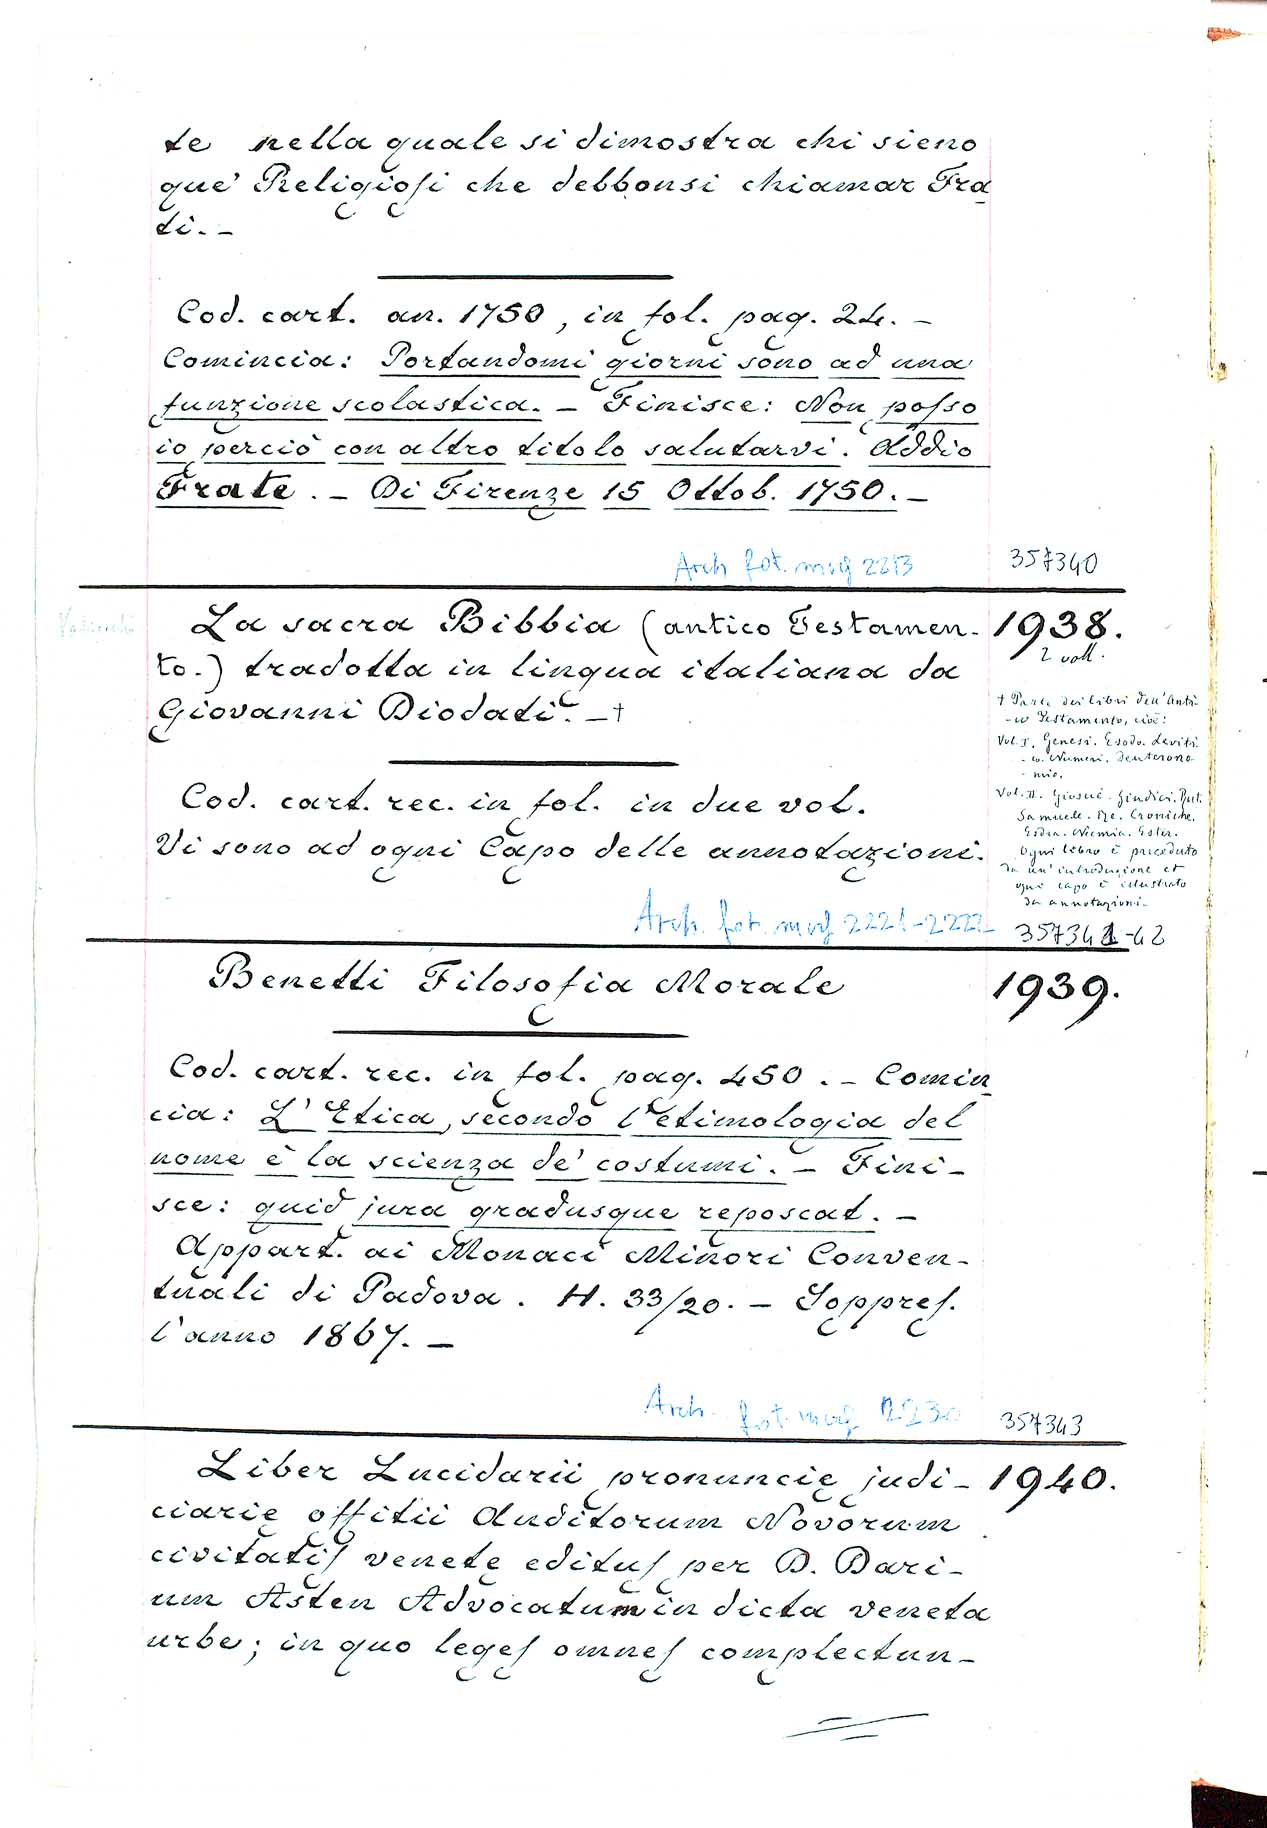 te nella quale si dimostra chi sieno
que' Religiosi che debbonsi chiamar Fra
ti. –
Cod. cart. an. 1750, in fol. pag. 24. –
Comincia: Portandomi giorni sono ad una
funzione scolastica. – Finisce: Non posso
io perciò con altro titolo salutarvi. Addio
Frate. – Di Firenze 15 Ottob. 1750. –
Arch fot. mvg 2213 357340
La sacra Bibbia (antico Testamen- 1938.
2 voll.
to.) tradotta in lingua italiana da
Giovanni Diodati. – †
† Parte dei libri dell'Anti-
-co Testamento, cioè:
Vol. I. Genesi. Esodo. Leviti-
-co. Numeri. Deuterono
-mio.
Vol. II. Giosuè. Giudici. Rut.
Samuele. Re. Croniche.
Esdra. Niemia. Ester.
Ogni libro è preceduto
da un'introduzione et
ogni capo è illustrato
da annotazioni.
Cod. cart. rec. in fol. in due vol.
Vi sono ad ogni Capo delle annotazioni.
Arch. fot. mvg 2221-2222 357341-42
Benetti Filosofia Morale 1939.
Cod. cart. rec. in fol. pag. 450. – Comin
cia: L'Etica, secondo l'etimologia del
nome è la scienza de' costumi. – Fini-
sce: quid jura gradusque reposcat. –
Appart. ai Monaci Minori Conven-
tuali di Padova. H. 33/20. – Soppres.
l'anno 1867. –
Arch. fot. mvg 2230 357343
Liber Lucidarii pronuncię judi- 1940.
ciarię offitii Auditorum Novorum
civitatis venetę editus per D. Dari-
um Asten Advocatum in dicta veneta
urbe; in quo leges omnes complectun-